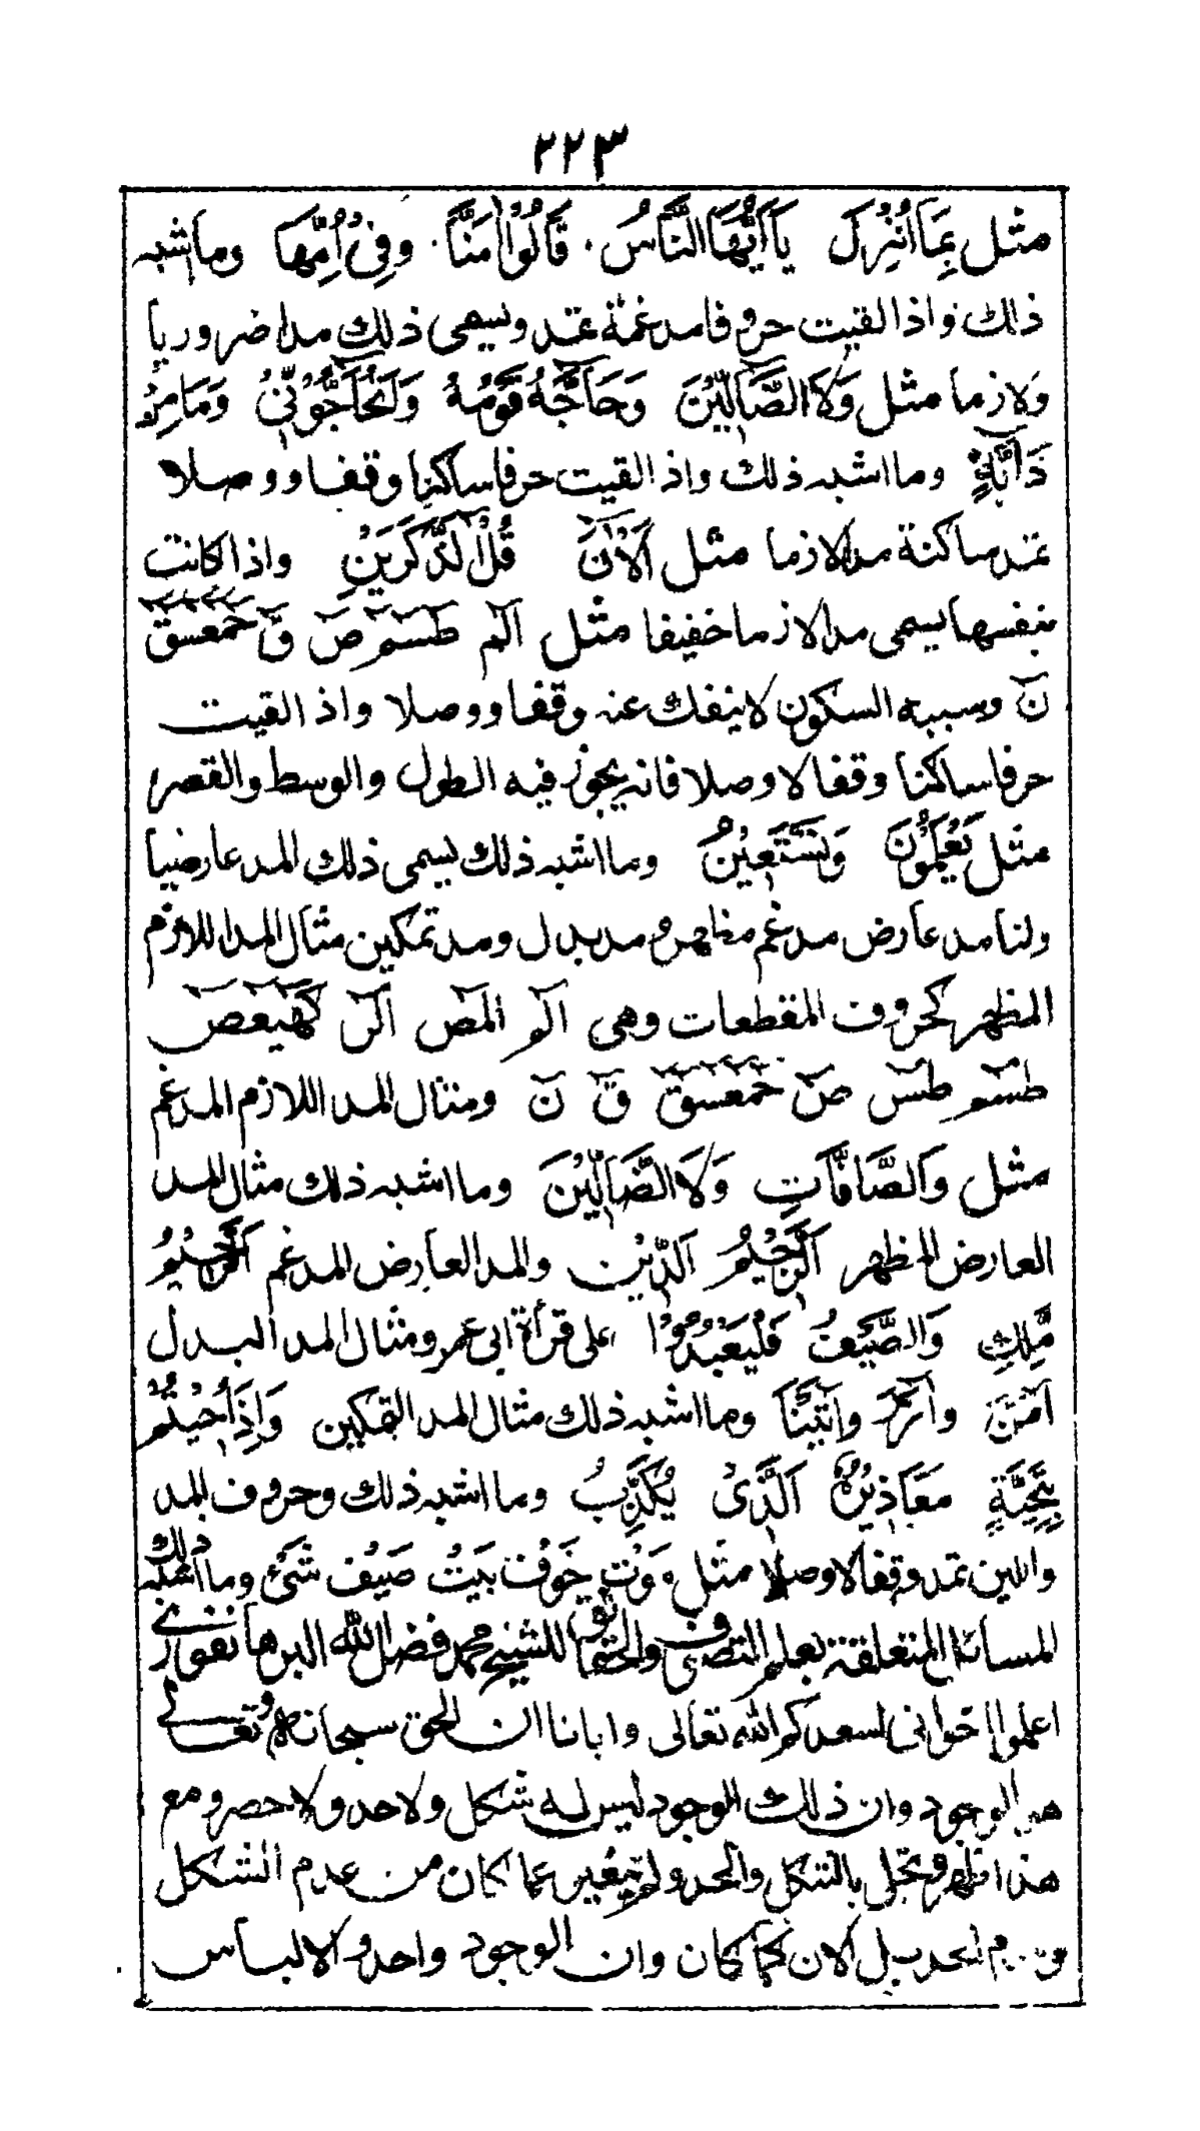 ٢٢٣
مثل بِمَا أُنْزِلَ يَا أَيُّهَا النَّاسُ . قَالُوْا أمَنَّا . وفِىْ أُمِّهَا وما اشبه
ذلك واذا لقيت حروفا مدغمة تمد ويسمى ذلك مدا ضروريا
ولازما مثل وَلَا الضَّآلِّيْنَ وَحَآجَّهُ قَوْمُهُ وَاَتُحَآجُّوْنِّىْ وَمَا مِنْ
دَآبَّةٍ وما اشبه ذلك واذا لقيت حرفا ساكنا وقفا ووصلا
تمد ساكنة مدا لازما مثل آلْآنَ قُلْ آلذَّكَرَيْنِ واذا كانت
بنفسها يسمى مدا لازما خفيفا مثل الٓمٓ طٓسٓمٓ صٓ قٓ حٓمٓعٓسٓقٓ
نٓ وسببه السكون لا ينفك عنه وقفا ووصلا واذ القيت
حرفا ساكنا وقفا لا وصلا فانه يجوز فيه الطول والوسط والقصر
مثل يَعْلَمُوْنَ وَنَسْتَعِيْنُ وما اشبه ذلك يسمى ذلك المد عارضيا
ولنا مد عارض مدغم مظهر ومد بدل ومد تمكين مثال المد اللازم
المظهر كحروف المقطعات وهى الٓمٓ الٓمٓصٓ الٓرٰ كٓهٰيٰعٓصٓ
طٰسٓمٓ طٰسٓ صٓ حٓمٓعٓسٓقٓ قٓ نٓ ومثال المد اللازم المدغم
مثل وَالصَّآفَّاتِ وَلَا الضَّآلِّيْنَ وما اشبه ذلك مثال المد
العارض المظهر اَلرَّحِيْمُ اَلدِّيْنِ والمد العارض المدغم اَلرَّحِيْمُ
مَّلِكِ وَالصَّيْفُ فَلْيَعْبُدُوْا على قرأة ابى عمر ومثال المد البدل
آمَنَ وآزَرَ وآتَيْنَا وما اشبه ذلك مثال المد التمكين وَاِذَا حُيِّيْتُمْ
بِتَحِيَّةٍ مَعَاذِيْرَهُ اَلَّذِىْ يُكَذِّبُ وما اشبه ذلك وحروف المد
واللين تمد وقفا لا وصلا مثل مَوْت خَوْف بَيْتُ صَيْف شَىْءٍ وما اشبه ذلك
المسائل المتعلقة بعلم التصوف والحقائق للشيخ محمد فضل الله البرهانفورى
اعلموا اخوانى اسعدكم الله تعالى وايانا ان الحق سبحانه وتعالى
هو الوجود وان ذلك الوجود ليس له شكل ولا حد ولا حصر ومع
هذا ظهر وتجلى بالشكل والحد ولم يتغير عما كان من عدم الشكل
الحد بل الآن كما كان وان الوجود واحد والالباس